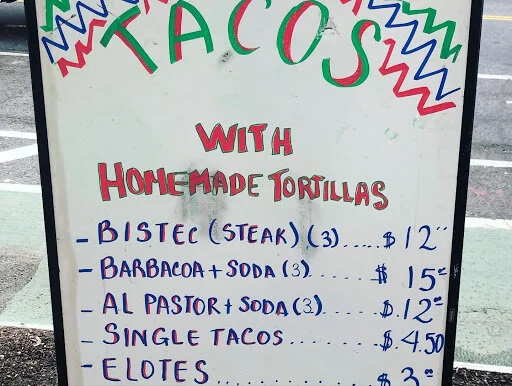 TACOS
WITH
HOMEMADE TORTILLAS
- BISTEC (STEAK) (3)..... $12°°
- BARBACOA + SODA (3)....... $ 15°
- AL PASTOR + SODA (3)...... $.12°
- SINGLE TACOS........ $.4.50
- ELOTES........... $.3°